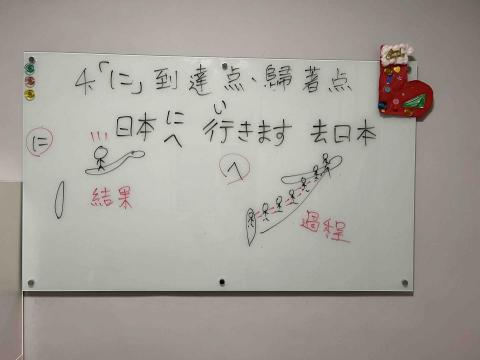 4.「に」到達点、歸著点
日本に/へ 行きます 去日本
い
に
へ
結果
過程